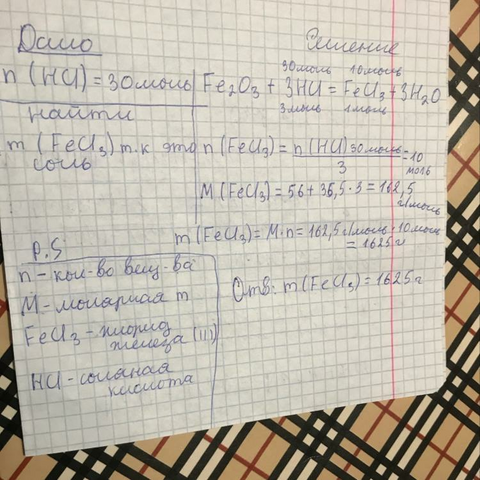 Дано
n (HCl) = 30 моль
Найти
m (FeCl3) т.к это
соль
Решение
30 моль 10 моль
Fe2O3 + 3HCl = FeCl3 + 3H2O
3 моль 1 моль
n (FeCl3) = n (HCl) 30 моль / 3 = 10 моль
M (FeCl3) = 56 + 35,5 · 3 = 162,5 г/моль
m (FeCl3) = M · n = 162,5 г/моль · 10 моль
= 1625 г
Отв: m (FeCl3) = 1625 г
P.S
n - кол-во вещ-ва
M - молярная m
FeCl3 - хлорид
железа (III)
HCl - соляная
кислота